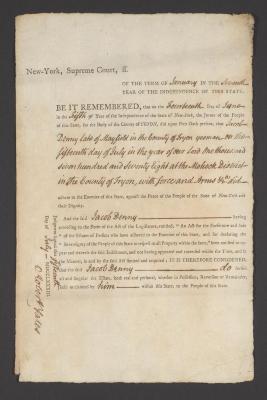 New-York, Supreme Court, ss.
OF THE TERM OF January IN THE Seventh
YEAR OF THE INDEPENDENCE OF THIS STATE.
BE IT REMEMBERED, that on the Fourteenth Day of June
in the Fifth Year of the Independence of the State of New-York, the Jurors of the People
of this State, for the Body of the County of TRYON, did upon their Oath present, that Jacob
Denny late of Mayfield in the County of Tryon yeoman on the
fifteenth day of July in the year of our Lord One thousand
seven hundred and seventy Eight at the Mohock District
in the County of Tryon, with force and Arms &c. Did
adhere to the Enemies of this State, against the Peace of the People of the State of New-York and
their Dignity.
And the said Jacob Denny having
according to the Form of the Act of the Legislature, entitled, "An Act for the Forfeiture and Sale
"of the Estates of Persons who have adhered to the Enemies of this State, and for declaring the
"Sovereignty of the People of this State in respect to all Property within the same,"
the said Jacob Denny do forfeit
all and singular the Estate, both real and personal, whether in Possession, Reversion or Remainder,
him within this State, to the People of this State.
Judgment fifteenth
Day of July MDCCLXXXIII.
Robert Yates